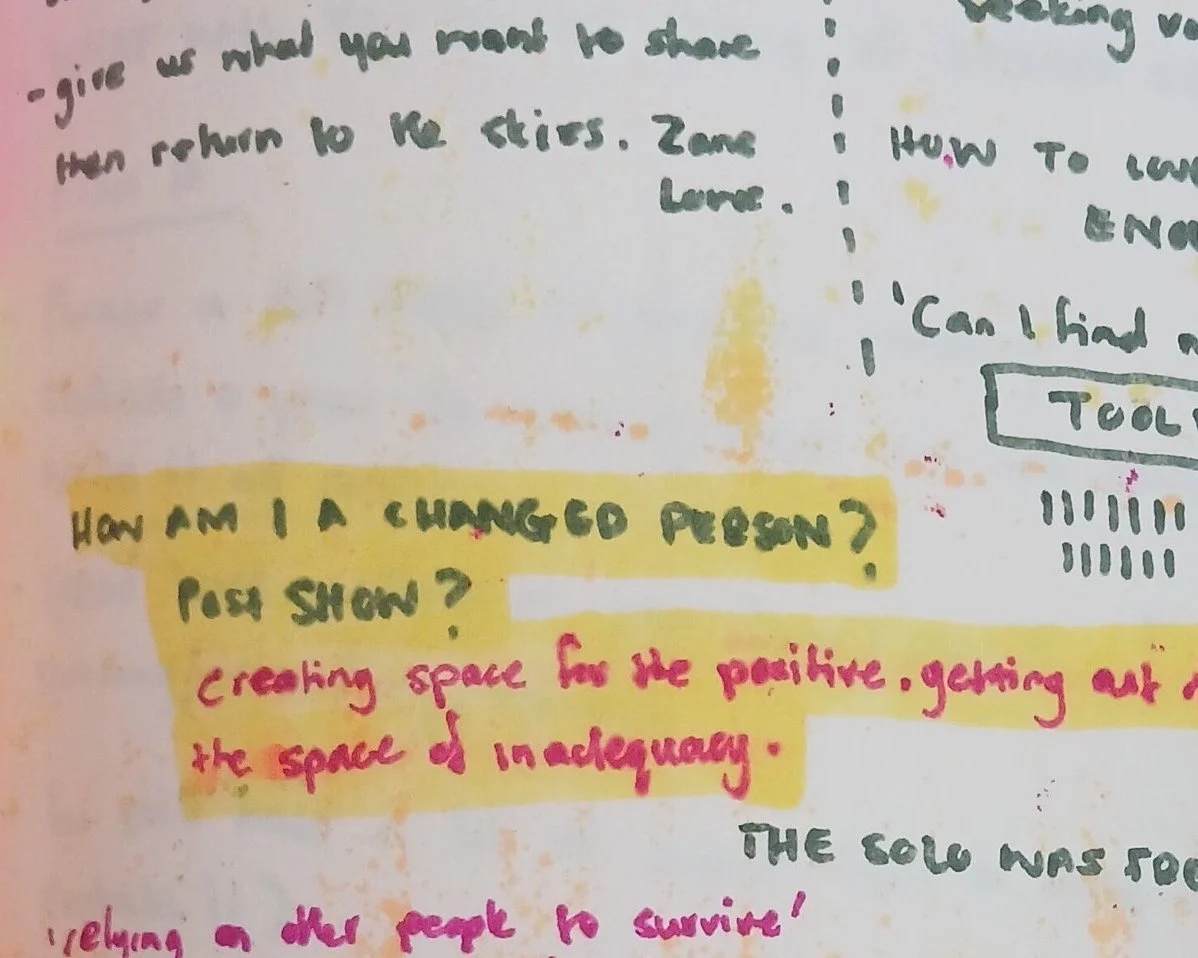 - give us what you want to share
then return to the skies. Zane
Lowe.
seeking
HOW TO
'Can I find
TOOL
HOW AM I A CHANGED PERSON?
Post SHOW?
creating space for the positive. getting out
the space of inadequacy.
THE SOLO WAS
'relying on other people to survive'